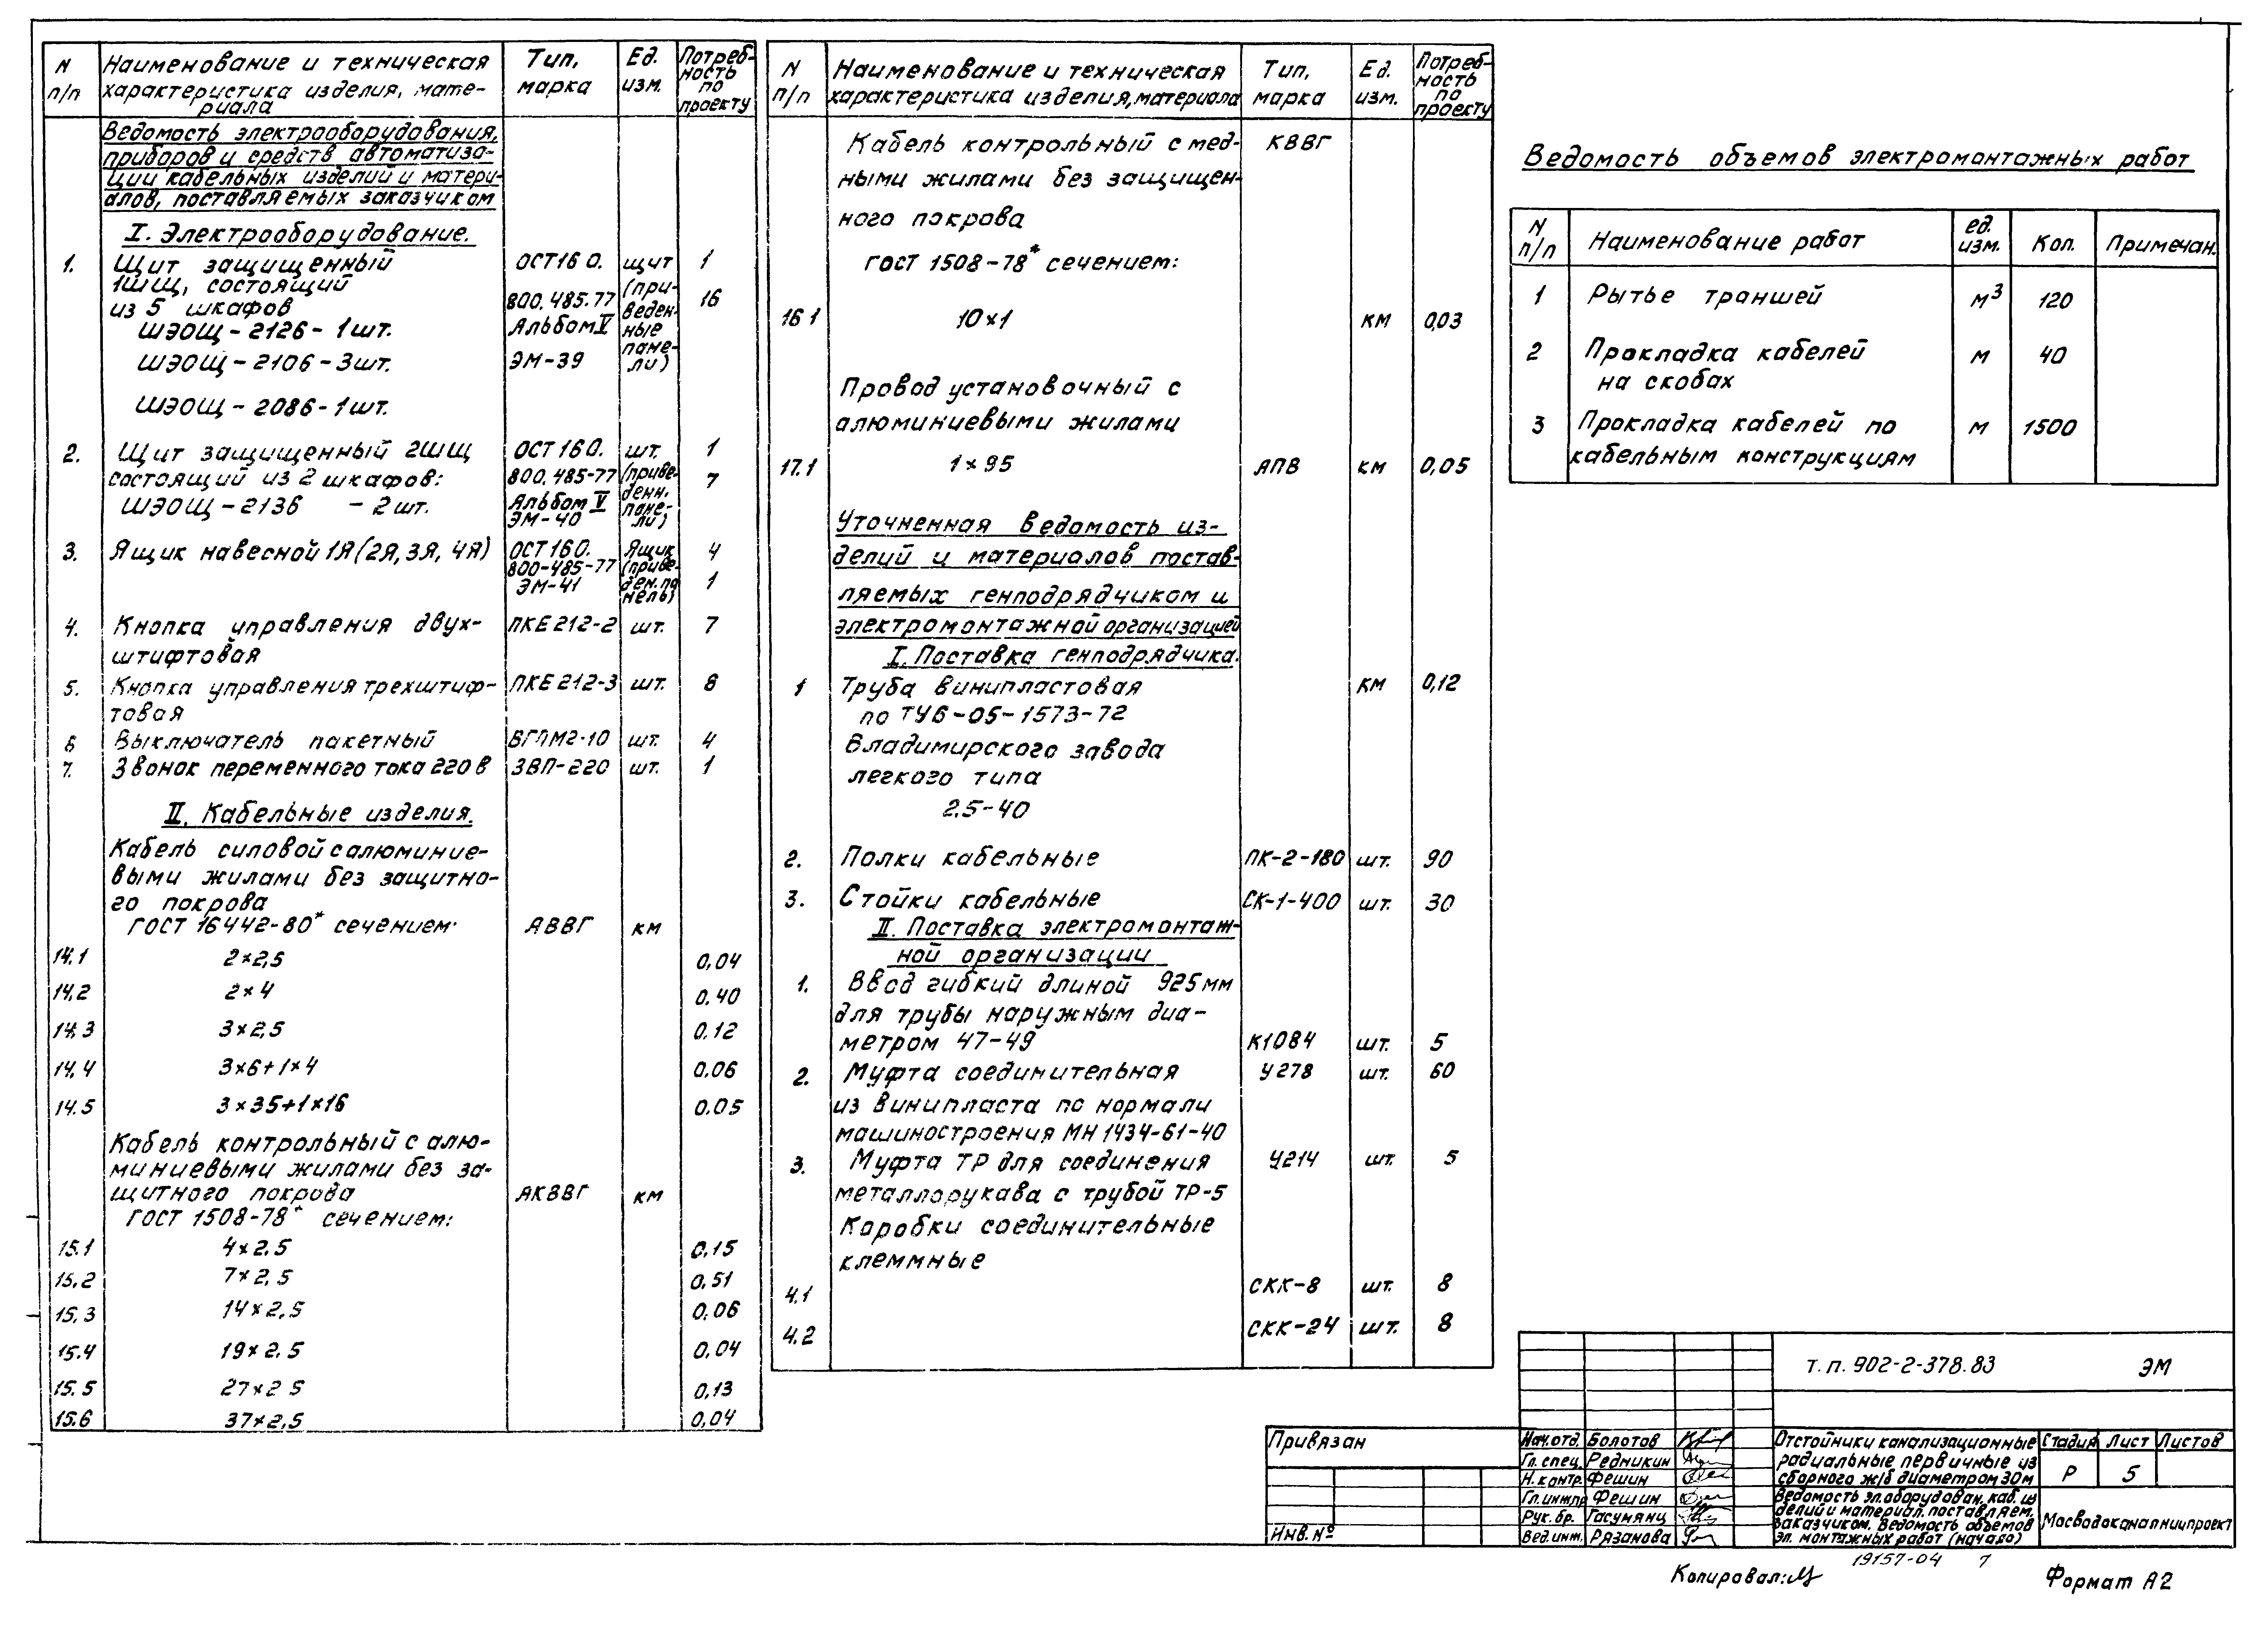 N п/п | Наименование и техническая характеристика изделия, материала | Тип, марка | Ед. изм. | Потребность по проекту
Ведомость электрооборудования,
приборов и средств автоматиза-
ции кабельных изделий и матери-
алов, поставляемых заказчиком
I. Электрооборудование.
1. Щит защищенный ОСТ16 0. щит 1
1ШЩ, состоящий (при-
из 5 шкафов 800.485.77 веден- 16
ШЭОЩ-2126-1шт. Альбом V ные
ШЭОЩ-2106-3шт. ЭМ-39 пане-
ли)
ШЭОЩ-2086-1шт.
2. Щит защищенный 2ШЩ ОСТ160. шт. 1
состоящий из 2 шкафов: 800.485-77 (приве- 7
ШЭОЩ-2136 - 2шт. Альбом V денн.
ЭМ-40 пане-
ли)
3. Ящик навесной 1Я(2Я,3Я,4Я) ОСТ160. Ящик 4
800-485-77 (приве-
ЭМ-41 ден.па 1
нель)
4. Кнопка управления двух- ПКЕ212-2 шт. 7
штифтовая
5. Кнопка управления трехштиф- ПКЕ212-3 шт. 6
товая
6 Выключатель пакетный ВГПМ2-10 шт. 4
7. Звонок переменного тока 220в ЗВП-220 шт. 1
II. Кабельные изделия.
Кабель силовой с алюминие-
выми жилами без защитно-
го покрова
ГОСТ 16442-80* сечением. АВВГ км
14.1 2×2,5 0,04
14.2 2×4 0,40
14.3 3×2,5 0,12
14.4 3×6+1×4 0,06
14.5 3×35+1×16 0,05
Кабель контрольный с алю-
миниевыми жилами без за-
щитного покрова АКВВГ км
ГОСТ 1508-78* сечением:
15.1 4×2,5 0,15
15.2 7×2,5 0,51
15.3 14×2,5 0,06
15.4 19×2,5 0,04
15.5 27×2 5 0,13
15.6 37×2,5 0,04
N п/п | Наименование и техническая характеристика изделия, материала | Тип, марка | Ед. изм. | Потребность по проекту
Кабель контрольный с мед- КВВГ
ными жилами без защищен-
ного покрова
ГОСТ 1508-78* сечением:
16 1 10×1 км 0,03
Провод установочный с
алюминиевыми жилами
17.1 1×95 АПВ км 0,05
Уточненная ведомость из-
делий и материалов постав-
ляемых генподрядчиком и
электромонтажной организацией
I. Поставка генподрядчика.
1 Труба винипластовая км 0,12
по ТУ6-05-1573-72
Владимирского завода
легкого типа
2,5-40
2. Полки кабельные ПК-2-180 шт. 90
3. Стойки кабельные СК-1-400 шт. 30
II. Поставка электромонтаж-
ной организации
1. Ввод гибкий длиной 925мм
для трубы наружным диа-
метром 47-49 К1084 шт. 5
2. Муфта соединительная У278 шт. 60
из винипласта по нормали
машиностроения МН 1434-61-40
3. Муфта ТР для соединения У214 шт. 5
металлорукава с трубой ТР-5
Коробки соединительные
клеммные
4.1 СКК-8 шт. 8
4.2 СКК-24 шт. 8
Ведомость объемов электромонтажных работ
N п/п | Наименование работ | ед. изм. | Кол. | Примечан.
1 Рытье траншей м³ 120
2 Прокладка кабелей м 40
на скобах
3 Прокладка кабелей по м 1500
кабельным конструкциям
Привязан
Инв. №
т.п. 902-2-378.83 ЭМ
Нач.отд. Болотов
Гл. спец. Редникин
Н. контр. Фешин
Гл.инж.пр Фешин
Рук. бр. Гасумянц
Вед.инж. Рязанова
Отстойники канализационные
радиальные первичные из
сборного ж/б диаметром 30м
Стадия Лист Листов
Р 5
Ведомость эл.оборудован. каб. из
делий и материал. поставляем.
заказчиком. Ведомость объемов
эл. монтажных работ (начало)
Мосводоканалниипроект
19157-04 7
Копировал:
Формат А2